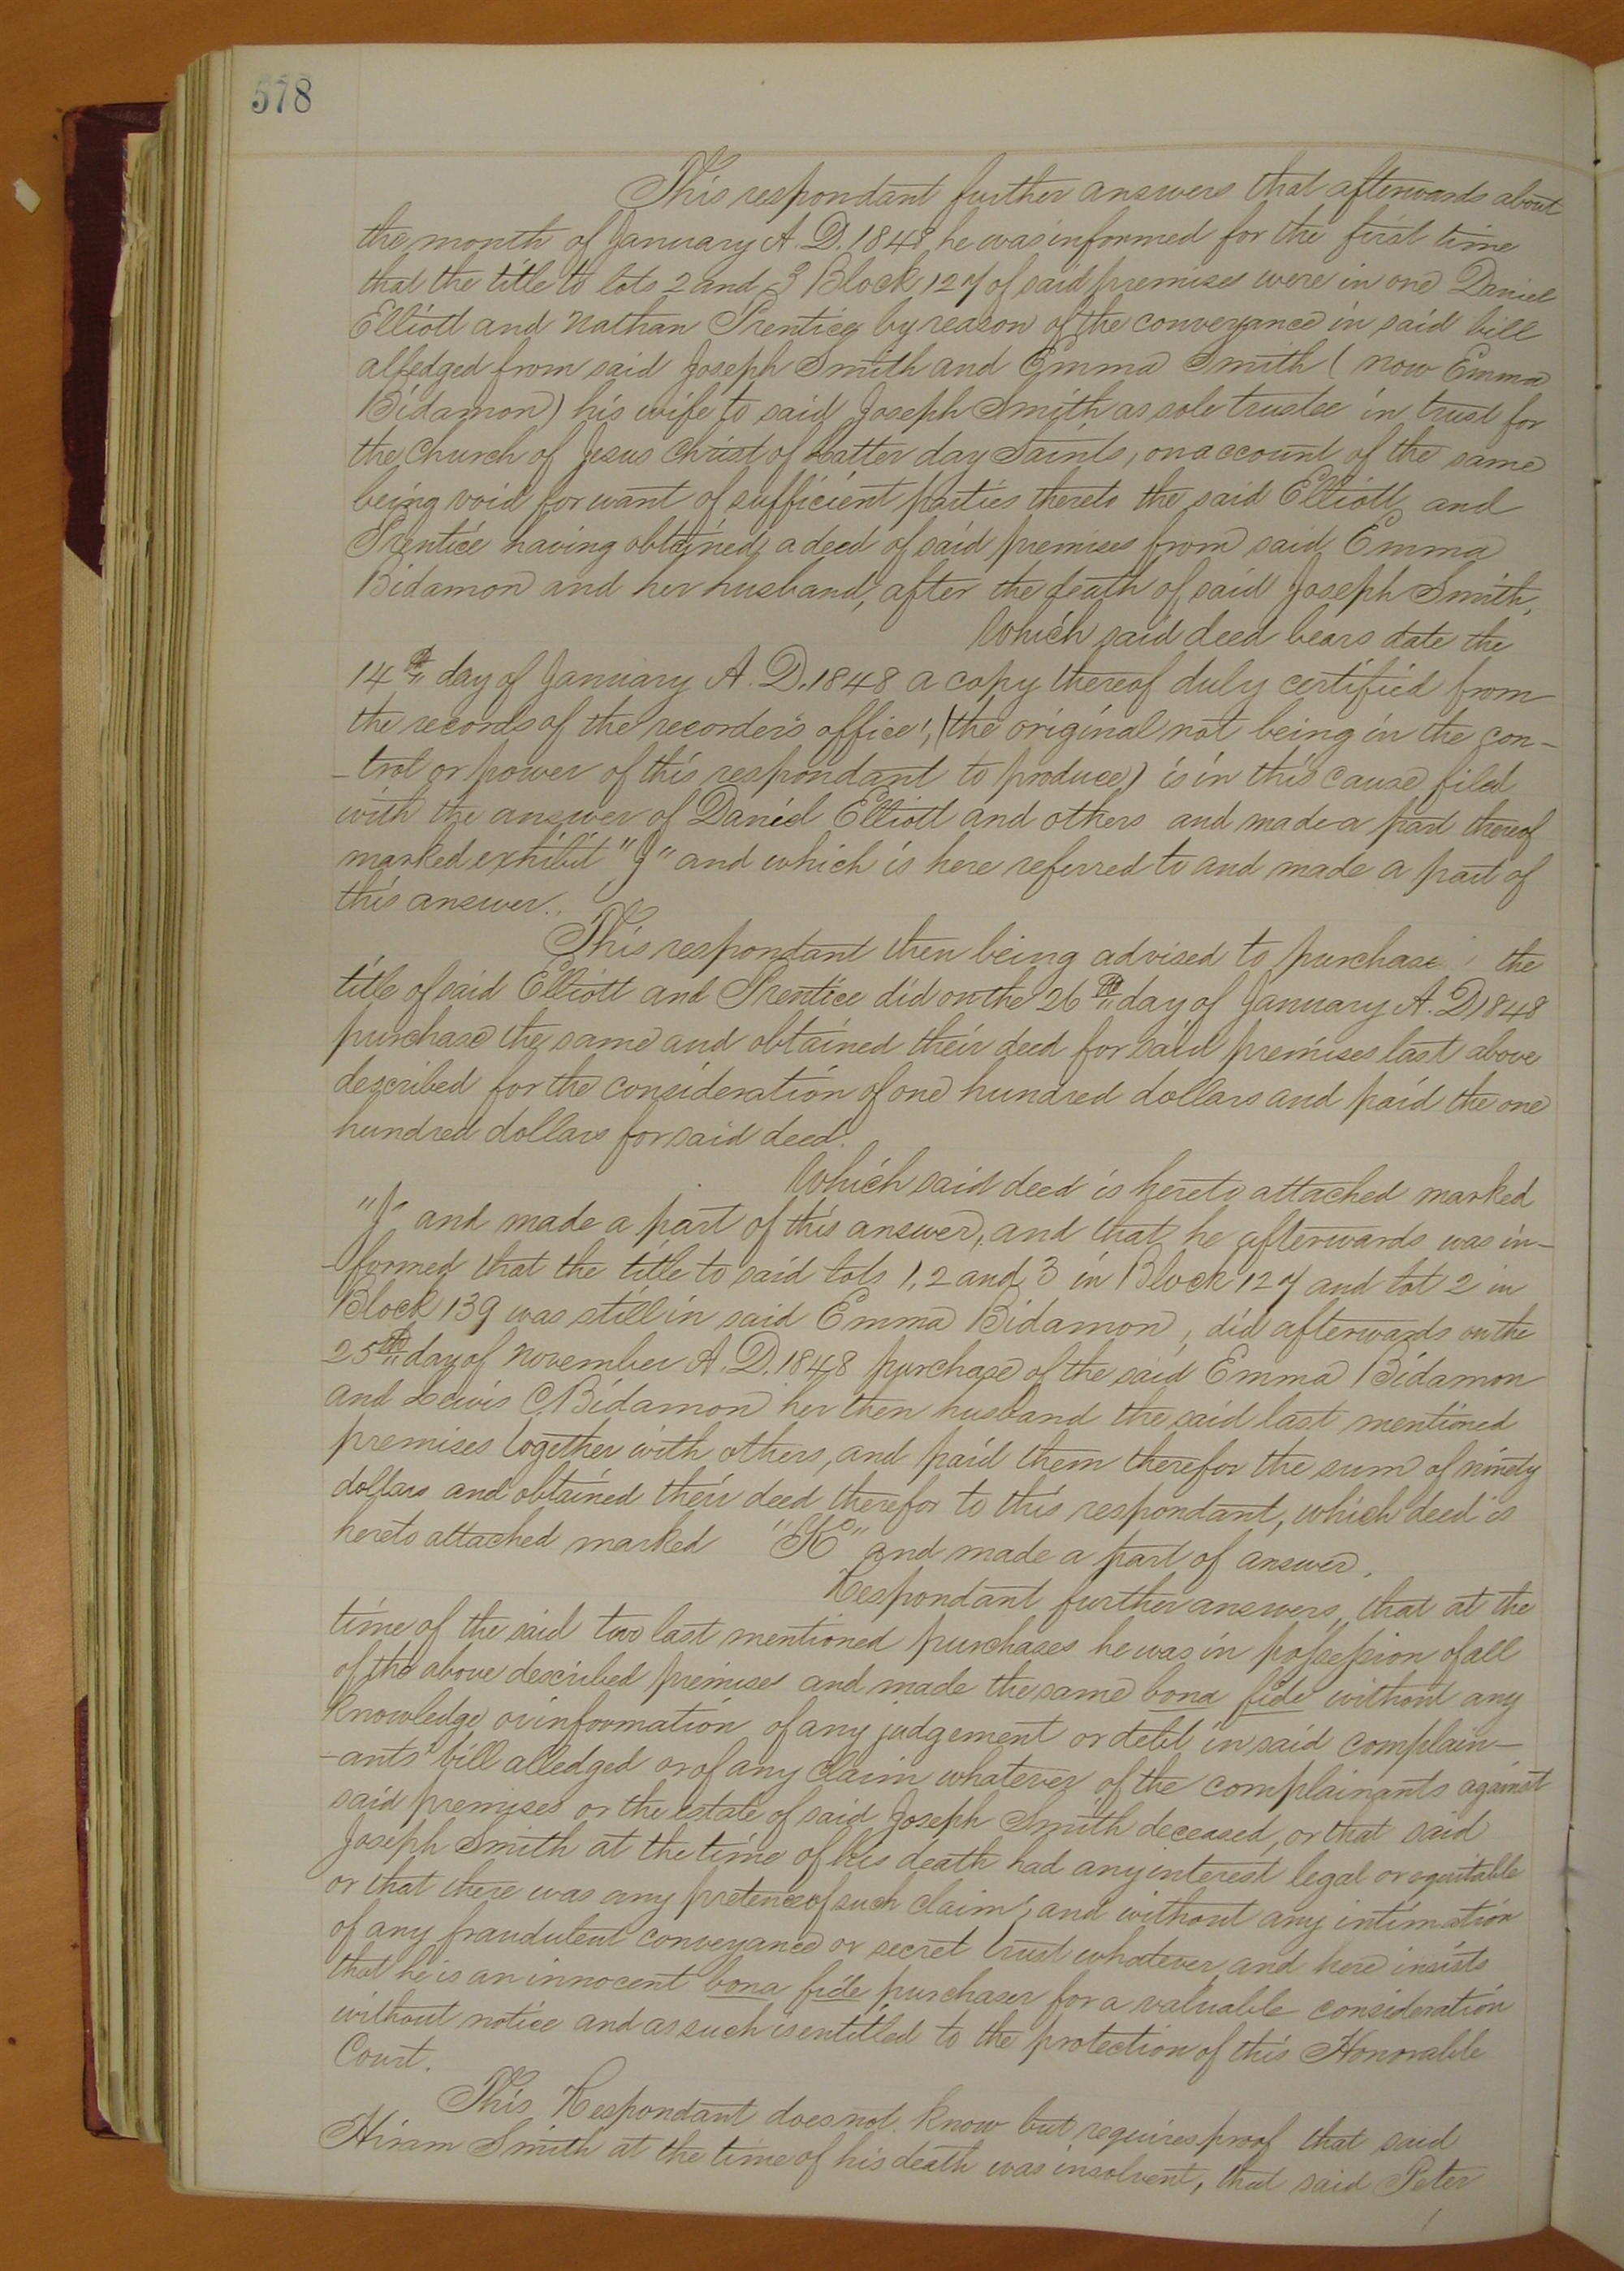 578
This respondant further answers that afterwards about
the month of January A. D. 1848, he was informed for the first time
that the title to lots 2 and 3 Block 127 of said premises were in one Daniel
Elliott and Nathan Prentice by reason of the conveyance in said bill
alledged from said Joseph Smith and Emma Smith (now Emma
Bidamon) his wife to said Joseph Smith as sole trustee in trust for
the Church of Jesus Christ of Latter day Saints, on account of the same
being void for want of sufficient parties thereto the said Elliott and
Prentice having obtained a deed of said premises from said Emma
Bidamon and her husband, after the death of said Joseph Smith,
Which said deed bears date the
14th day of January A. D. 1848 a copy thereof duly certified from
the records of the recorder's office, (the original not being in the con-
-trol or power of this respondant to produce) is in this cause filed
with the answer of Daniel Elliott and others and made a part thereof
marked exhibit "J" and which is here referred to and made a part of
this answer..
This respondant then being advised to purchase the
title of said Elliott and Prentice did on the 26th day of January A. D 1848
purchase the same and obtained their deed for said premises last above
described for the consideration of one hundred dollars and paid the one
hundred dollars for said deed.
Which said deed is hereto attached marked
"J" and made a part of this answer, and that he afterwards was in-
-formed that the title to said lots 1, 2 and 3 in Block 127 and lot 2 in
Block 139 was still in said Emma Bidamon, did afterwards on the
25th day of November A. D. 1848 purchase of the said Emma Bidamon
and Lewis C. Bidamon her then husband the said last mentioned
premises together with others, and paid them therefor the sum of ninety
dollars and obtained their deed therefor to this respondant, which deed is
hereto attached marked "K" and made a part of answer.
Respondant further answers, that at the
time of the said two last mentioned purchases he was in possession of all
of the above described premises and made the same bona fide without any
knowledge or information of any judgement or debt in said complain-
-ants' bill alledged or of any claim whatever of the complainants against
said premises or the estate of said Joseph Smith deceased, or that said
Joseph Smith at the time of his death had any interest legal or equitable
or that there was any pretence of such claim, and without any intimation
of any fraudulent conveyance or secret trust whatever, and here insists
that he is an innocent bona fide purchaser for a valuable consideration
without notice and as such is entitled to the protection of this Honorable
Court.
This Respondant does not know but requires proof that said
Hiram Smith at the time of his death was insolvent, that said Peter